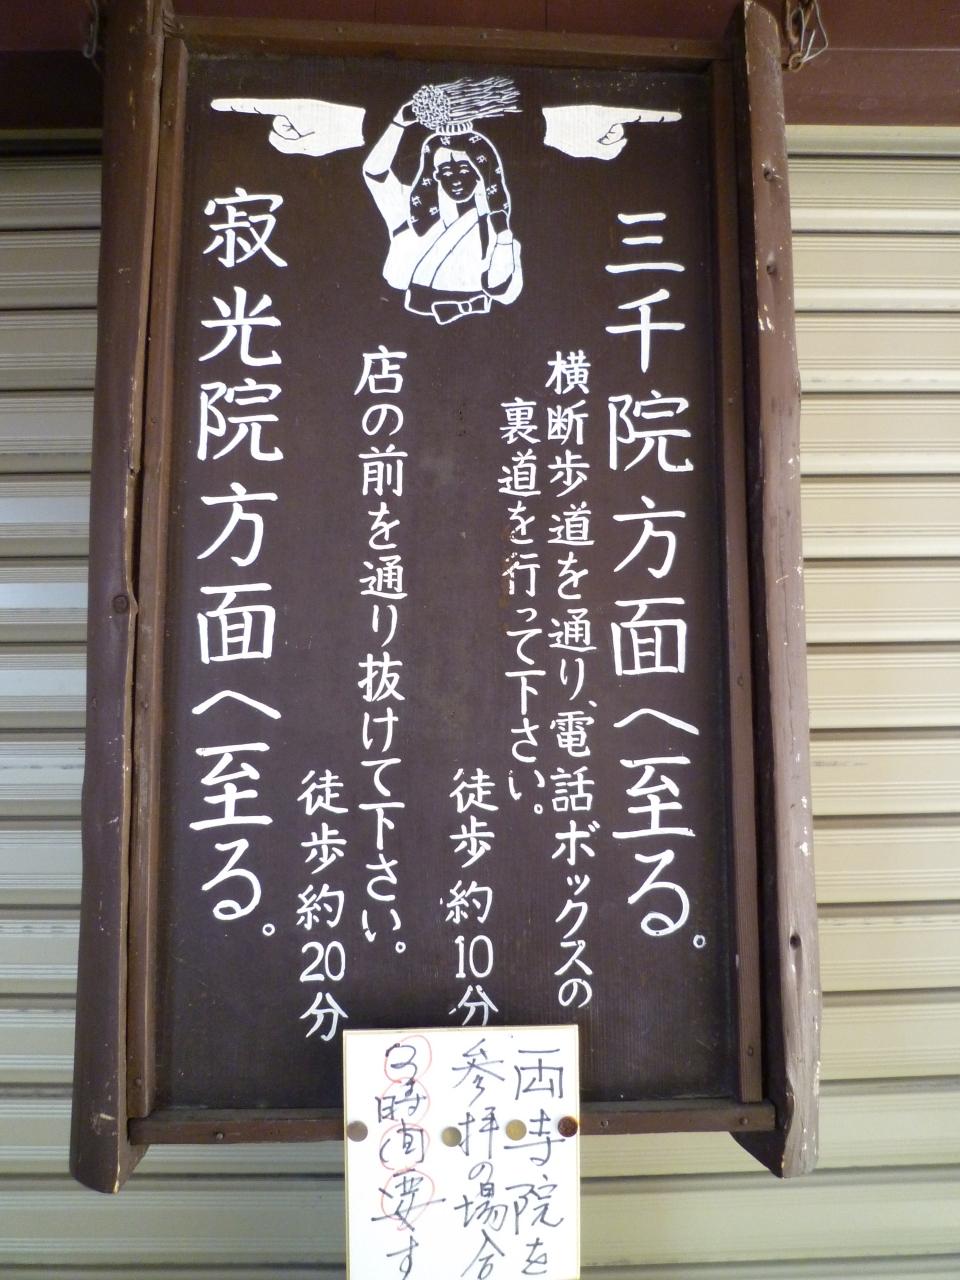 三千院方面へ至る。
横断歩道を通り、電話ボックスの
裏道を行って下さい。
徒歩約10分
店の前を通り抜けて下さい。
徒歩約20分
寂光院方面へ至る。
両寺院を
参拝の場合
3時間要す